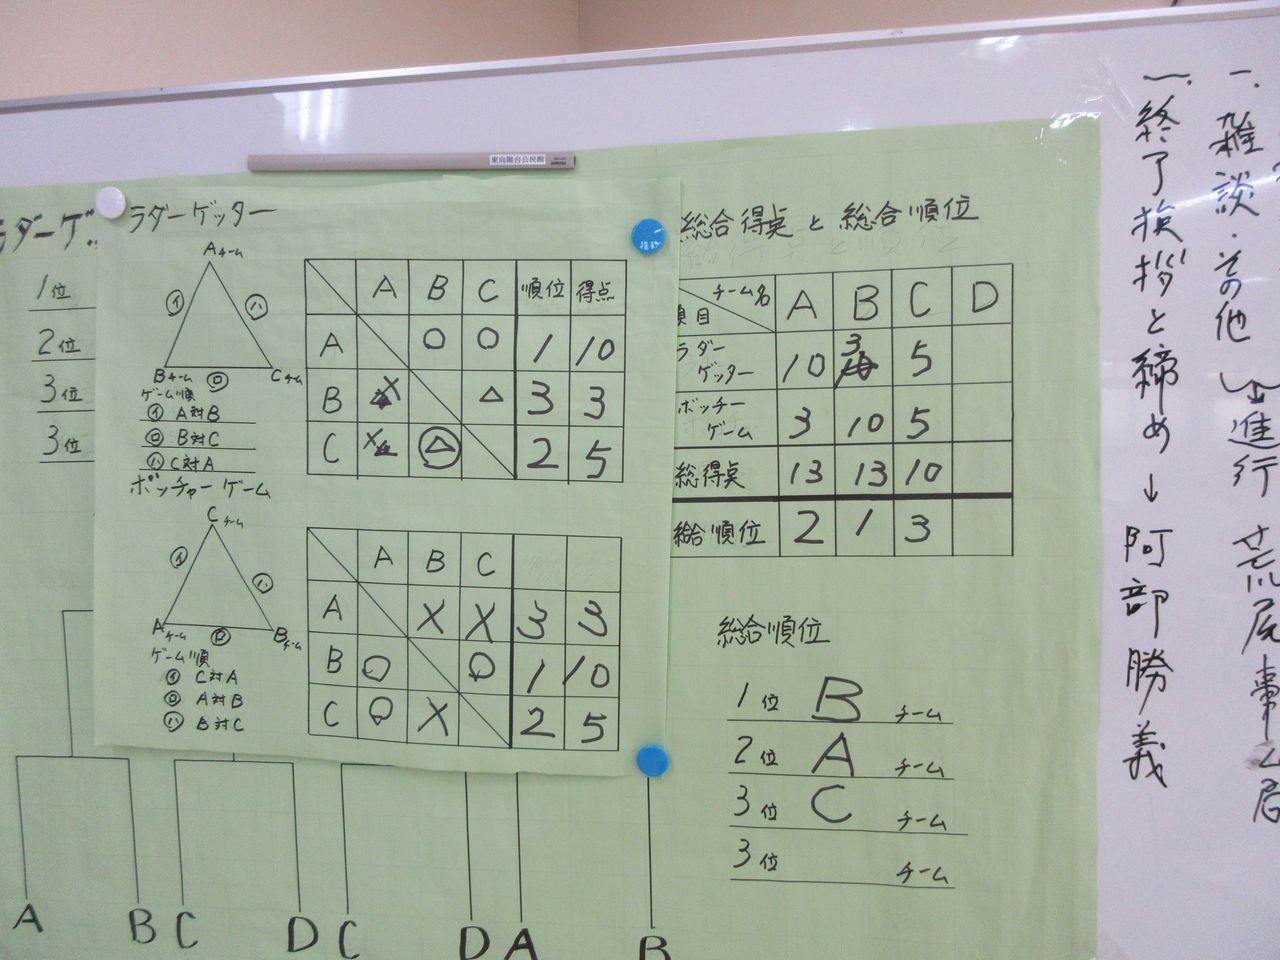 東向陽台公民館
ラダーゲッター
Aチーム
イ
ハ
Bチーム
ロ
Cチーム
ゲーム順
イ A対B
ロ B対C
ハ C対A
A B C 順位 得点
A ○ ○ 1 10
B × △ 3 3
C × △ 2 5
ボッチャーゲーム
Cチーム
イ
ハ
Aチーム
ロ
Bチーム
ゲーム順
イ C対A
ロ A対B
ハ B対C
A B C
A X X 3 3
B ○ ○ 1 10
C ○ X 2 5
ラダーゲ
1位
2位
3位
3位
A B C D C D A B
総合得点と総合順位
チーム名 A B C D
項目
ラダーゲッター 10 3 5
ボッチーゲーム 3 10 5
総得点 13 13 10
総合順位 2 1 3
総合順位
1位 B チーム
2位 A チーム
3位 C チーム
3位 チーム
一.雑談・その他
進行 荒尾事ム局
一.終了挨拶と締め→阿部勝義